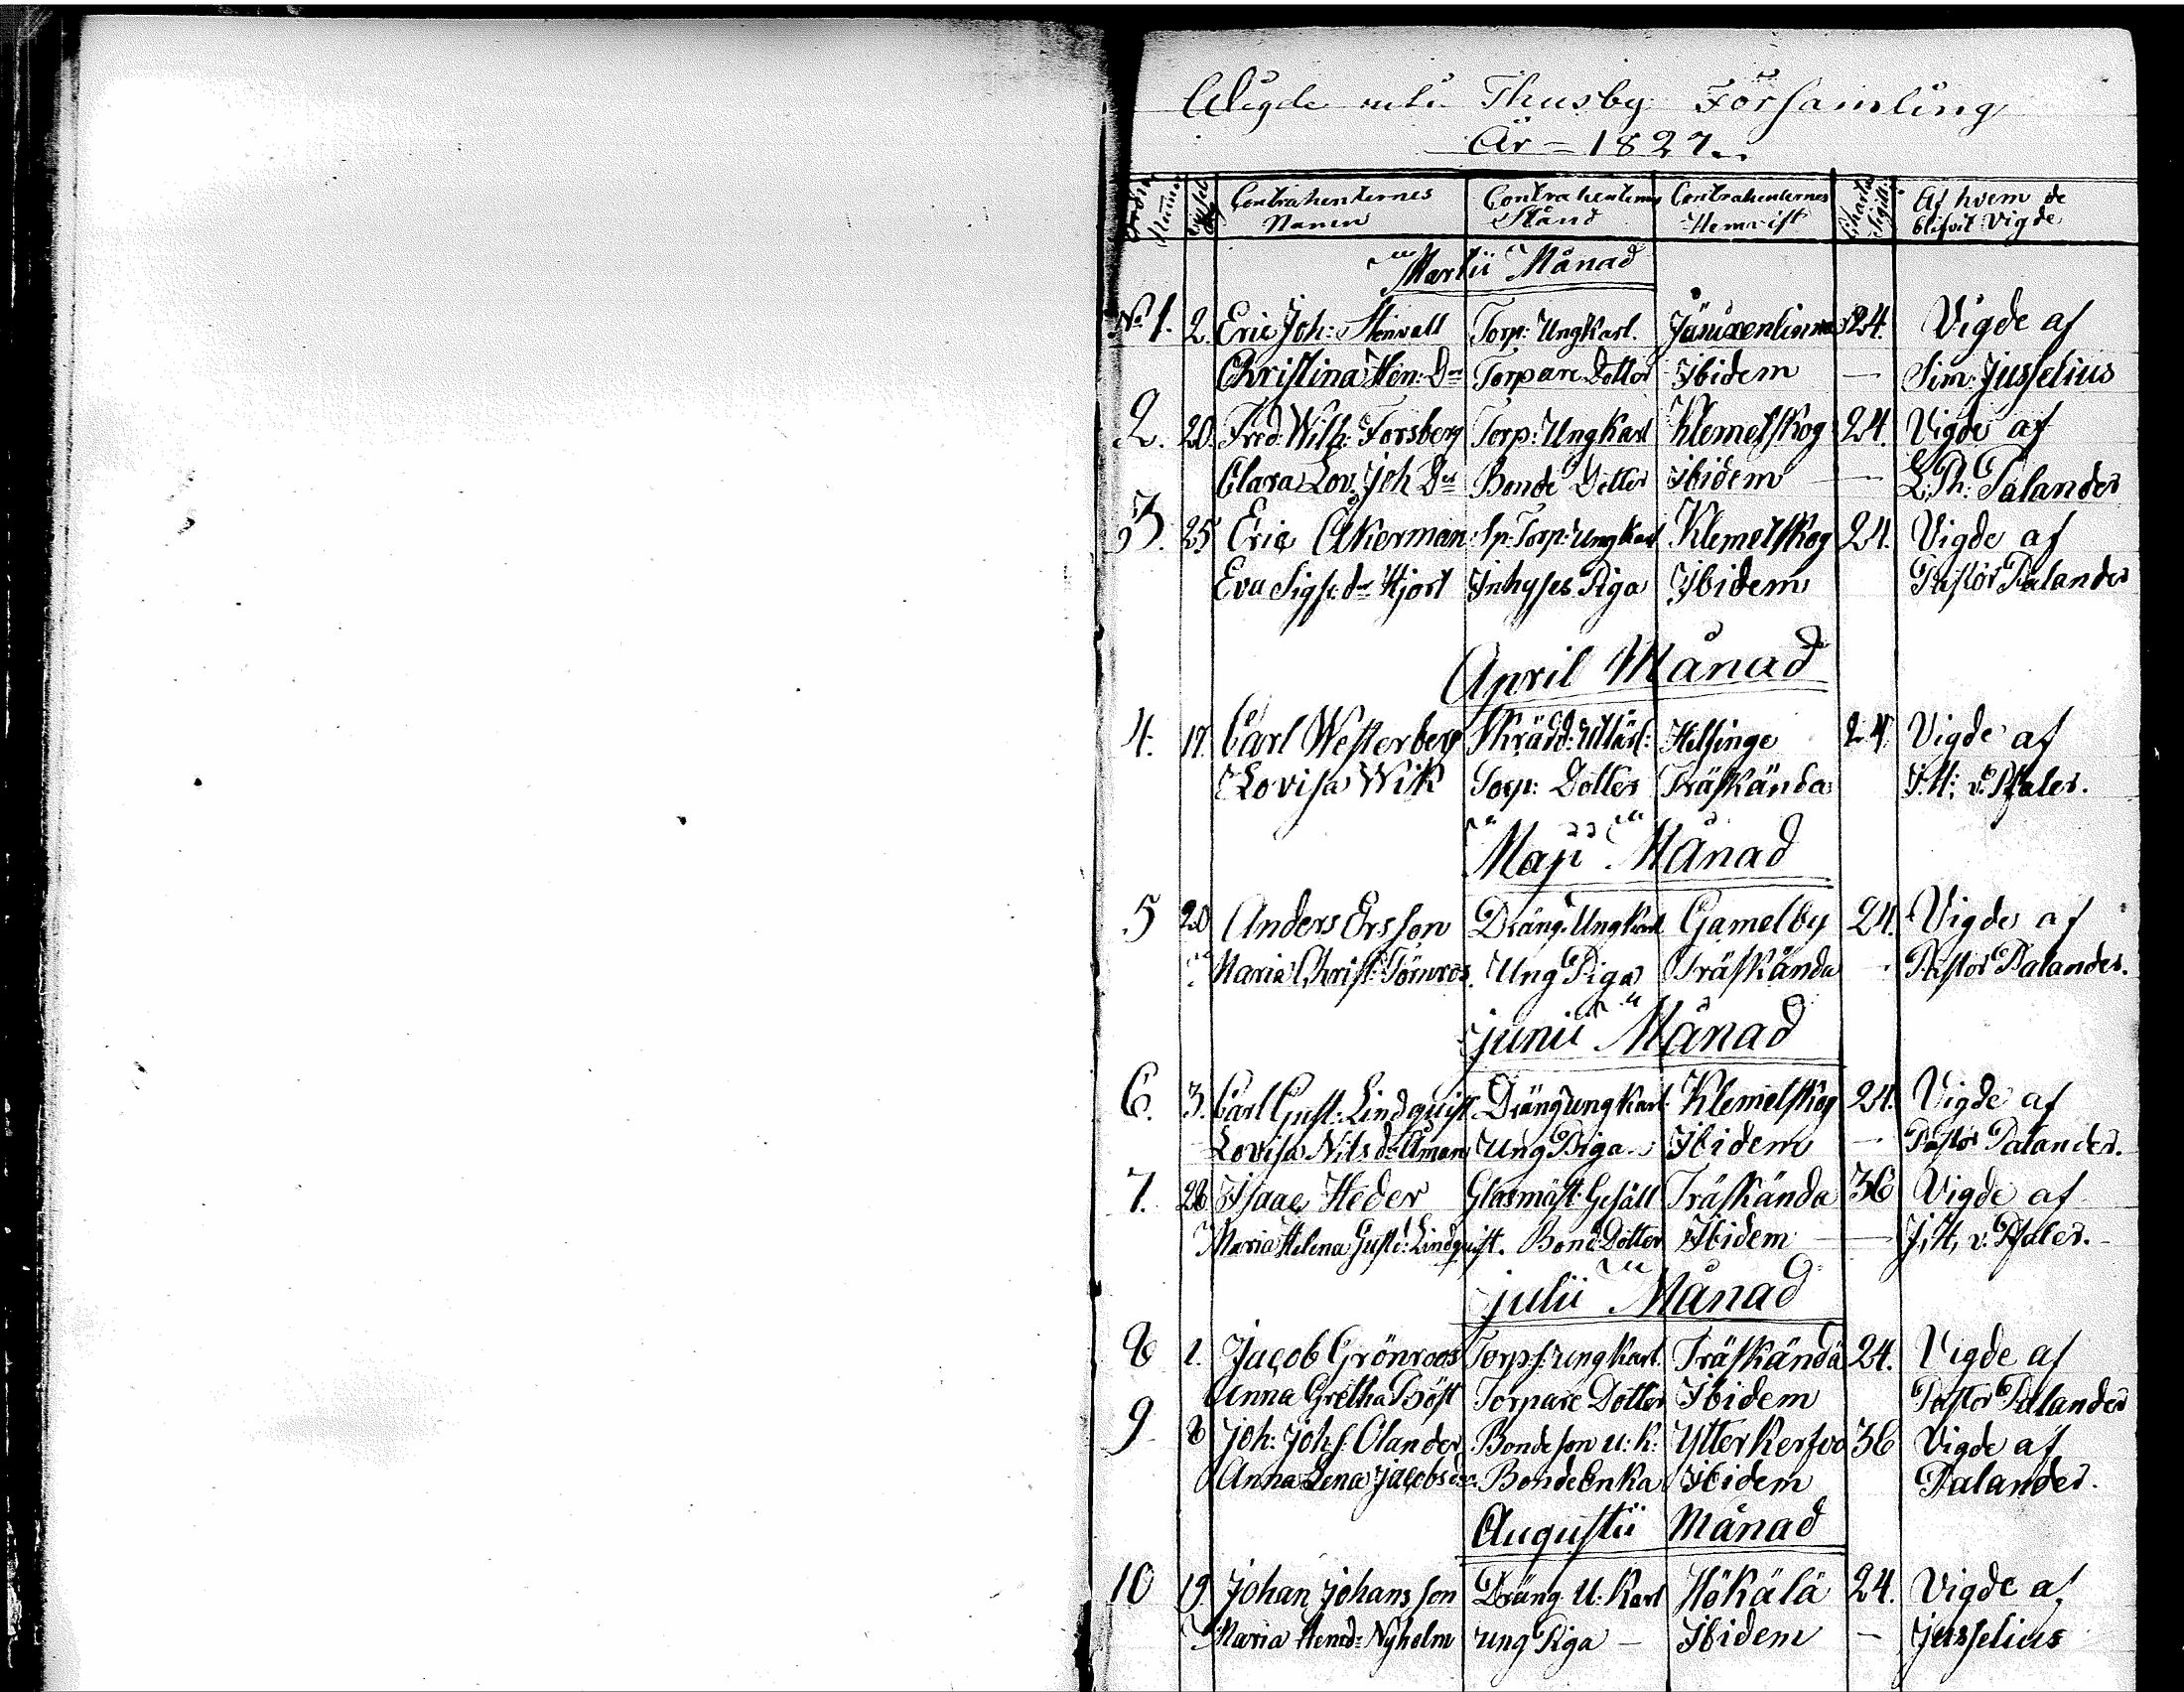 Wigde uti Thusby Församling
År = 1827.
Ordn: Numer Contrahenternes Namn Contrahenternes Stånd Contrahenternes Hemvist Charta Sigill: Af hvem de blifvit Vigde
Martii Månad
No 1. 2. Eric Joh: Stenvall Torp: Ungkarl. 24. Vigde af
Christina Hen: Dr Torpare Dotter Ibidem — Sim: Jusselius
2. 20. Fred: Wilh: Forsberg Torp: Ungkarl Klemetskog 24. Vigde af
Clara Lov: Joh Dr Bonde Dotter Ibidem — Palander
3. 25 Eric Åkerman Sp: Torp: Ungkarl Klemetskog 24. Vigde af
Eva Sigfr: dr Hjort Inhyses Piga Ibidem Pastor Palander
April Månad
4. 17. Carl Westerberg Skrädd: Mäst: Helsinge 24 Vigde af
Lovisa Wik Torp: Dotter Träskända J: H: v: Pfaler.
Maji Månad
5 20 Anders Ersson Dräng: Ungkarl Gamelby 24. Vigde af
Maria Christ: Törnros. Ung Piga Träskända Pastor Palander.
Junii Månad
6. 3. Carl Gust: Lindquist Dräng ungkarl Klemetskog 24. Vigde af
Lovisa Nils dr Åman Ung Piga Ibidem — Pastor Palander.
7. 28 Isaac Heder Glasmäst: Gesäll Träskända 36 Vigde af
Maria Helena Gustd: Lindquist. Bond: Dotter Ibidem — J: H, v: Pfaler.
Julii Månad
8 1. Jacob Grönroos Torp: s: ungkarl Träskända 24. Vigde af
Anna Gretha Böst Torpare Dotter Ibidem Pastor Palander
9 8 Joh: Johs: Olander Bondeson u: k: Ytterkerfvo 36 Vigde af
Anna Lena Jacobsdr. Bonde Enka Ibidem Palander.
Augusti Månad
10 19. Johan Johansson Dräng U: Karl Hökälä 24. Vigde af
Maria Henrd: Nyholm ung Piga — Ibidem — Jusselius